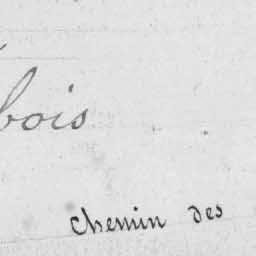 bois
chemin des